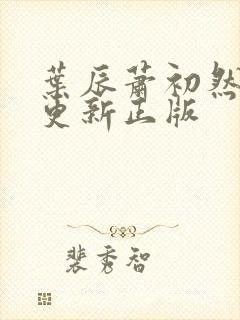 葉辰蕭初然
更新正版
裴秀智